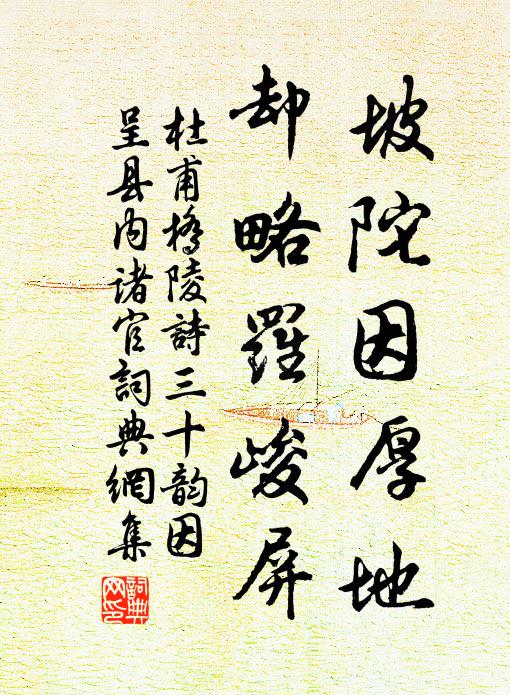 坡陀因厚地
却略羅峻屏
杜甫橋陵詩三十韵因
呈县内诸官詞典網集
詞典
网印